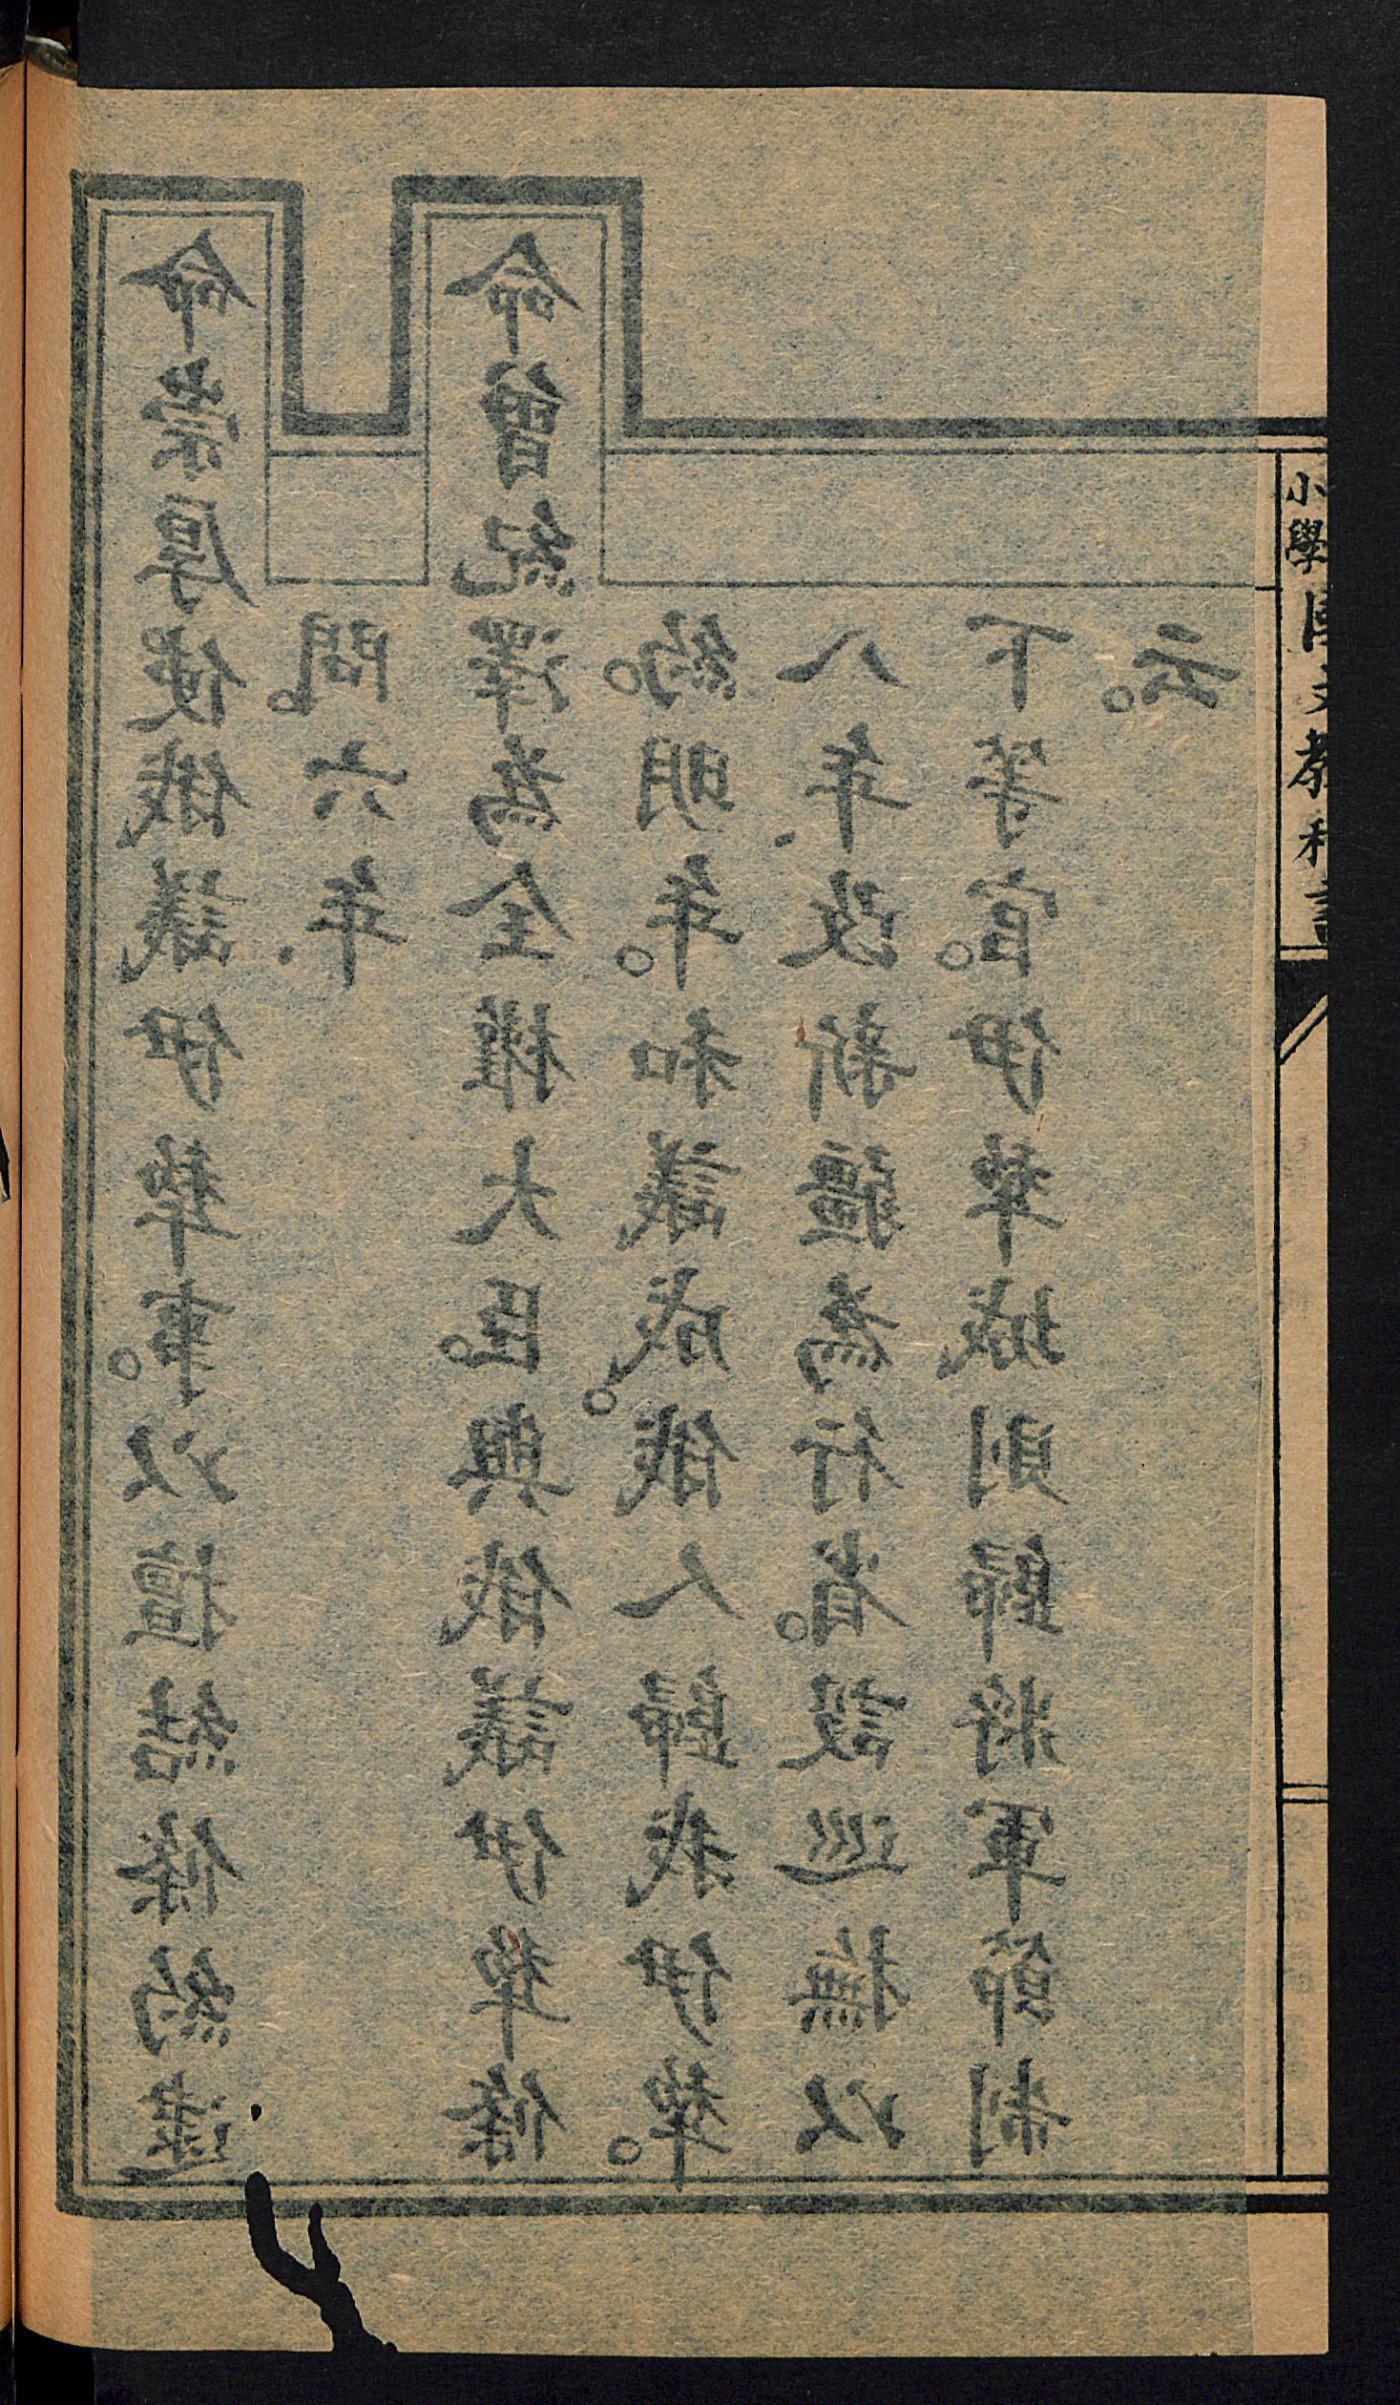 命崇厚使俄議伊犂事。以擅結條約逮
問。六年.
命曾紀澤為全權大臣。與俄議伊犂條
約。明年。和議成。俄人歸我伊犂。
八年.改新疆為行省。設巡撫以
下等官。伊犂城則歸將軍節制
云。
小學國文教科書